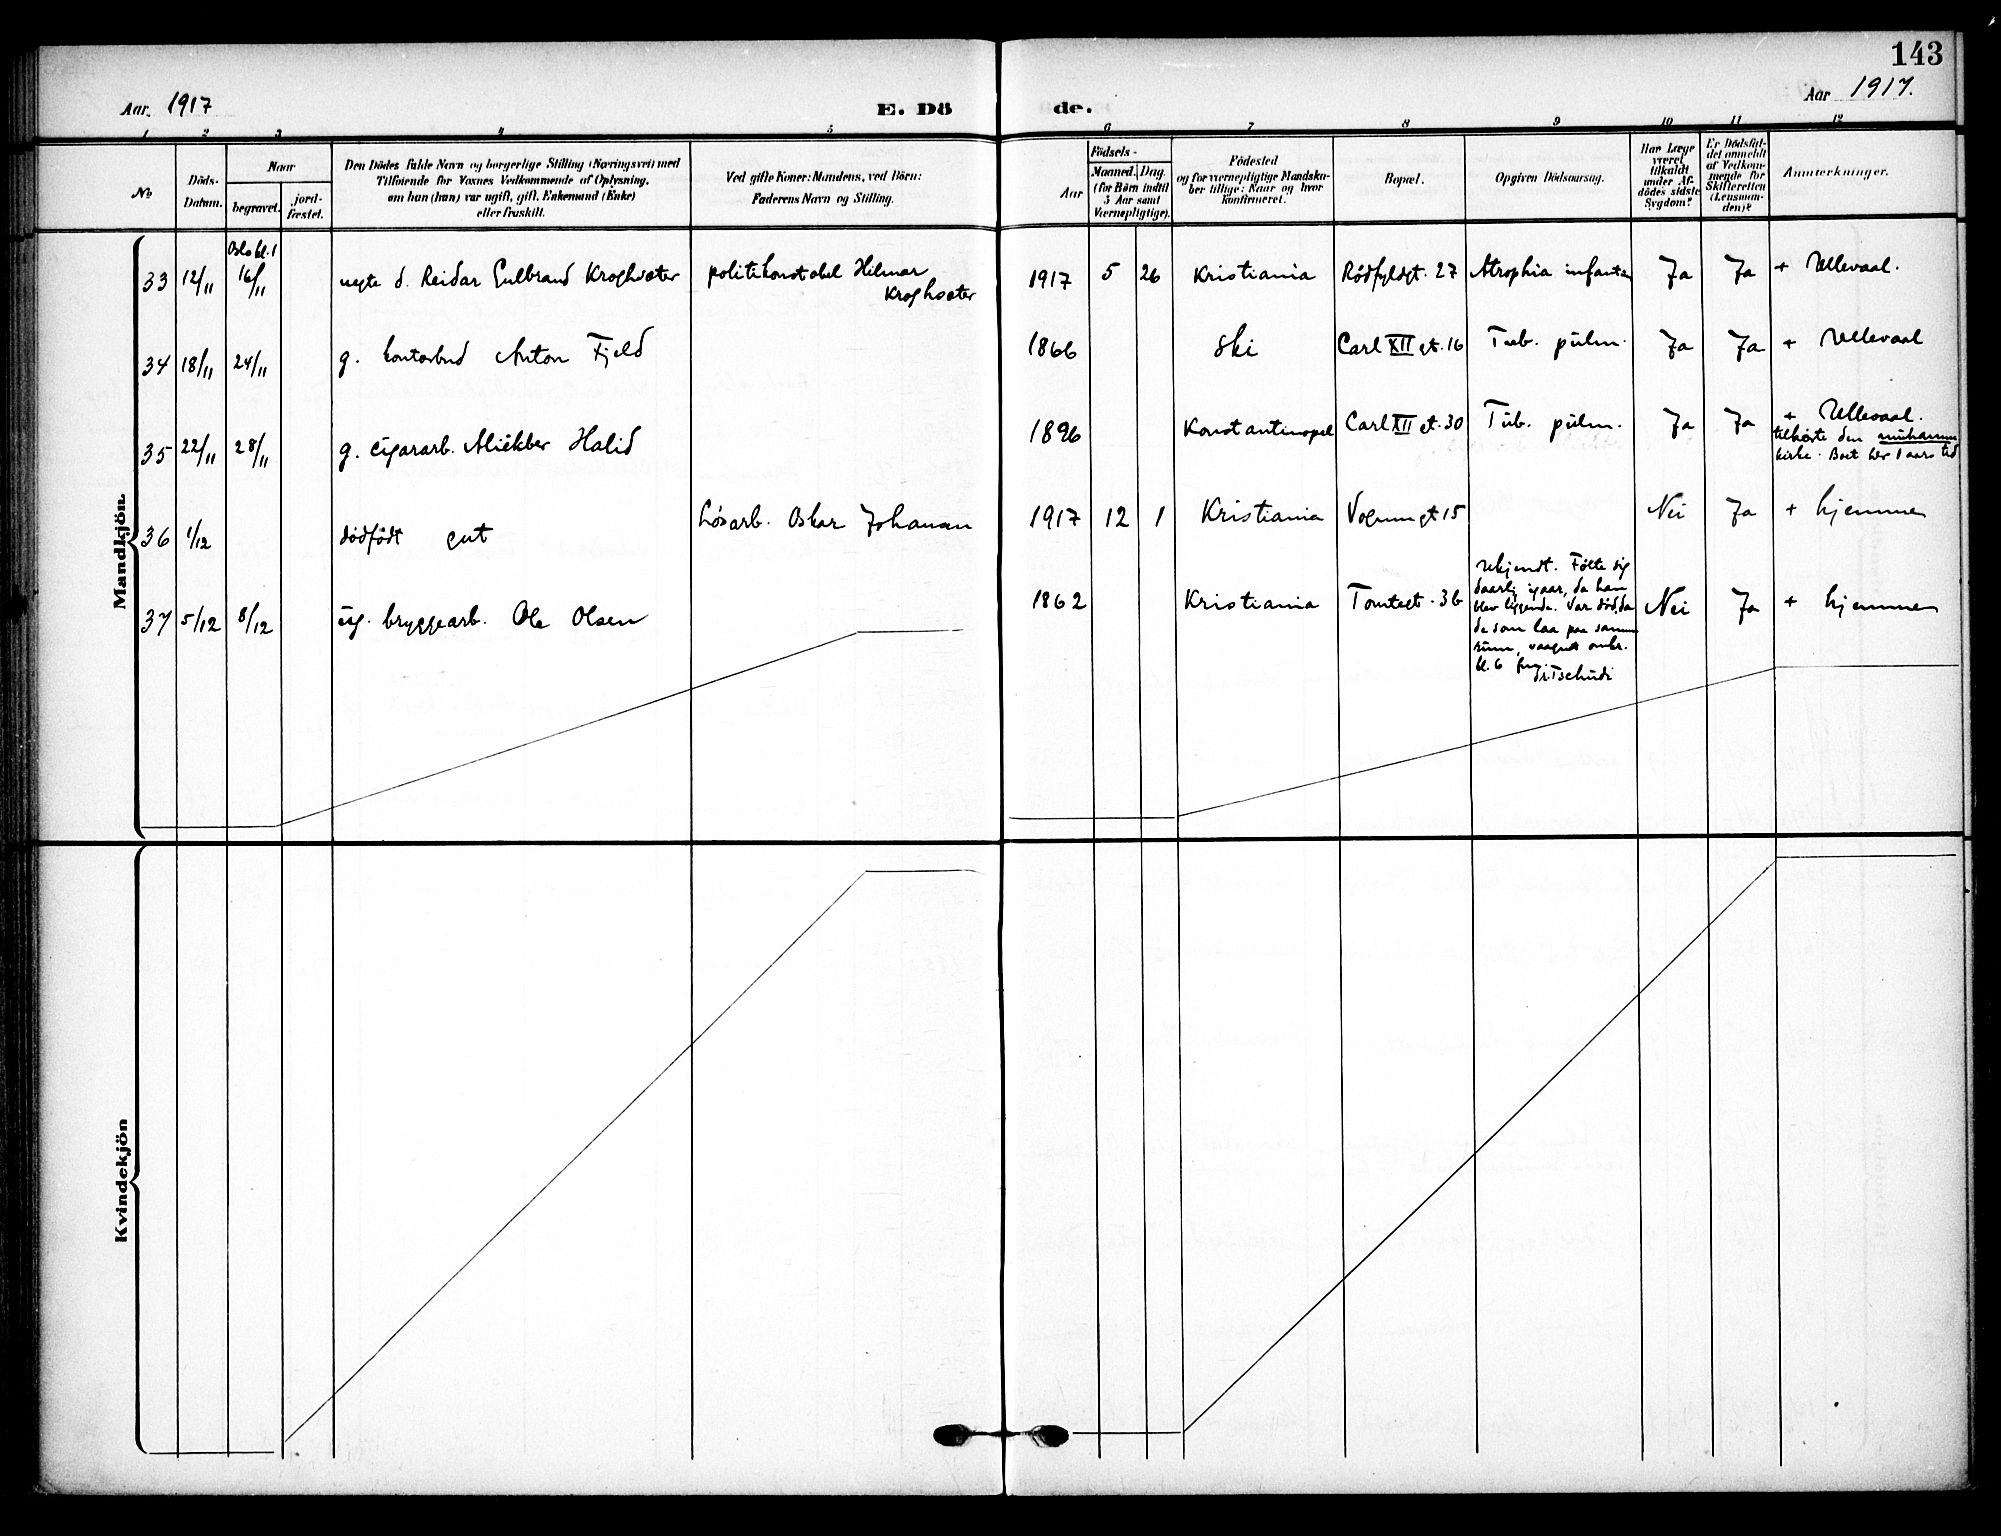 143
Aar. 1917
E. Dö
de.
Aar 1917.
1 2 3 4 5 6 7 8 9 10 11 12
No
Döds-
Datum.
Naar
begravet.
jord-
fæstet.
Den Dödes fulde Navn og borgerlige Stilling (Næringsvei) med
Tilföiende for Voxnes Vedkommende af Oplysning,
om han (hun) var ugift, gift, Enkemand (Enke)
eller fraskilt.
Ved gifte Koner: Mandens, ved Börn:
Faderens Navn og Stilling.
Födsels-
Aar
Maaned. Dag.
(for Börn indtil
5 Aar samt
Værnepligtige).
Födested
og for værnepligtige Mandska-
ber tillige: Naar og hvor
konfirmeret.
Bopæl.
Opgiven Dödsaarsag.
Har Læge
været
tilkaldt
under Af-
dödes sidste
Sygdom?
Er Dödsfal-
det anmeldt
af Vedkom-
mende for
Skifteretten
(Lensman-
den)?
Anmærkninger.
Mandkjön.
Oslo kl. 1
33 12/11 16/11 uegte d. Reidar Gulbrand Kroghsæter politikonstabel Hilmar
Kroghsæter
1917 5 26 Kristiania Rödfyldgt. 27 Atrophia infantum Ja Ja + Ullevaal.
34 18/11 24/11 g. kontorbud Anton Fjeld
1866 Ski Carl XII gt. 16 Tub. pulm. Ja Ja + Ullevaal
35 22/11 28/11 g. cigararb. Aliekber Halid
1896 Konstantinopel Carl XII gt. 30 Tub. pulm. Ja Ja + Ullevaal.
tilhørte den
kirke. Boet her 1 aars tid
36 1/12 dödfödt gut Lösarb. Oskar Johansen
1917 12 1 Kristiania Vognmgt 15 Nei Ja + hjemme
37 5/12 8/12 ug. bryggearb. Ole Olsen
1862 Kristiania Tomtegt. 3b Nei Ja + hjemme
ukjendt. Fölte sig
daarlig igaar, da han
blev liggende. Var död, da
de som laa paa samme
rum, vaagnet omkr.
kl. 6 fm.
dr. Tschudi
Kvindekjön